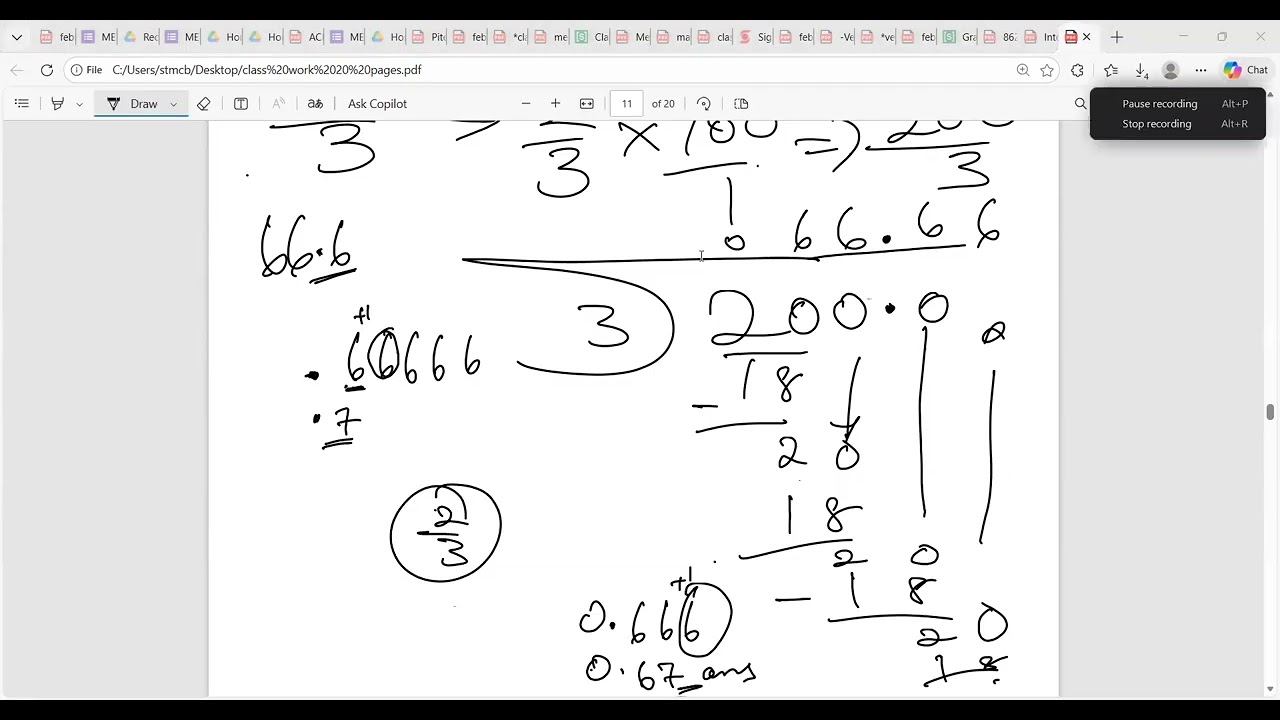 feb ME Rec ME Ho Ho AC ME Ho Pit feb *cl me Cla Me ma cla Sig feb -Ve *ve feb Gra 862 Int
File C:/Users/stmcb/Desktop/class%20work%2020%20pages.pdf Chat
Draw Ask Copilot 11 of 20
Pause recording Alt+P
Stop recording Alt+R
3 => 2/3 × 100/1 => 200/3
66.6
0 66.66
3 200.0 0
18
+1
.66666
- 
.7
20
2/3
18
20
- 18
+1
0.666
20
0.67 ans
18